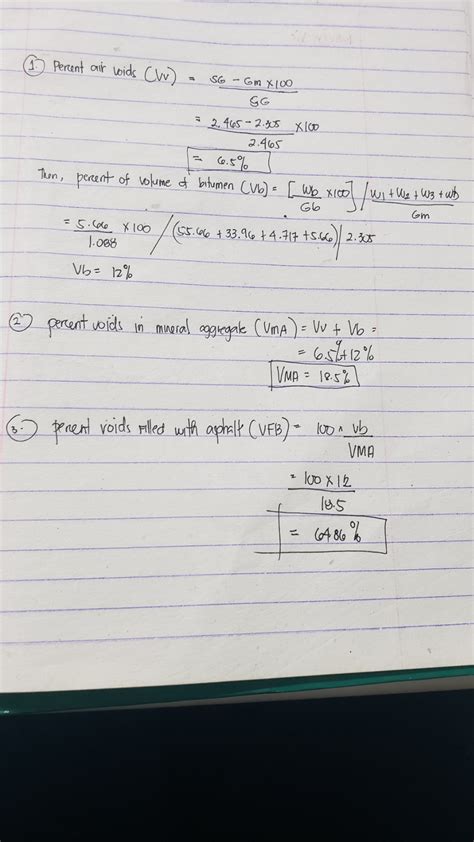 1. Percent air voids (Vv) = SG - Gm x 100
SG
= 2.465 - 2.305 x 100
2.465
= 6.5%
Then, percent of volume of bitumen (Vb) = [Wb x 100] / W1 + W2 + W3 + Wb
Gb Gm
= 5.66 x 100 / (55.66 + 33.96 + 4.717 + 5.66) / 2.305
1.088
Vb = 12%
2 percent voids in mineral aggregate (VMA) = Vv + Vb =
= 6.5% + 12%
VMA = 18.5%
3. percent voids filled with asphalt (VFB) = 100 x Vb
VMA
= 100 x 12
18.5
= 64.86%